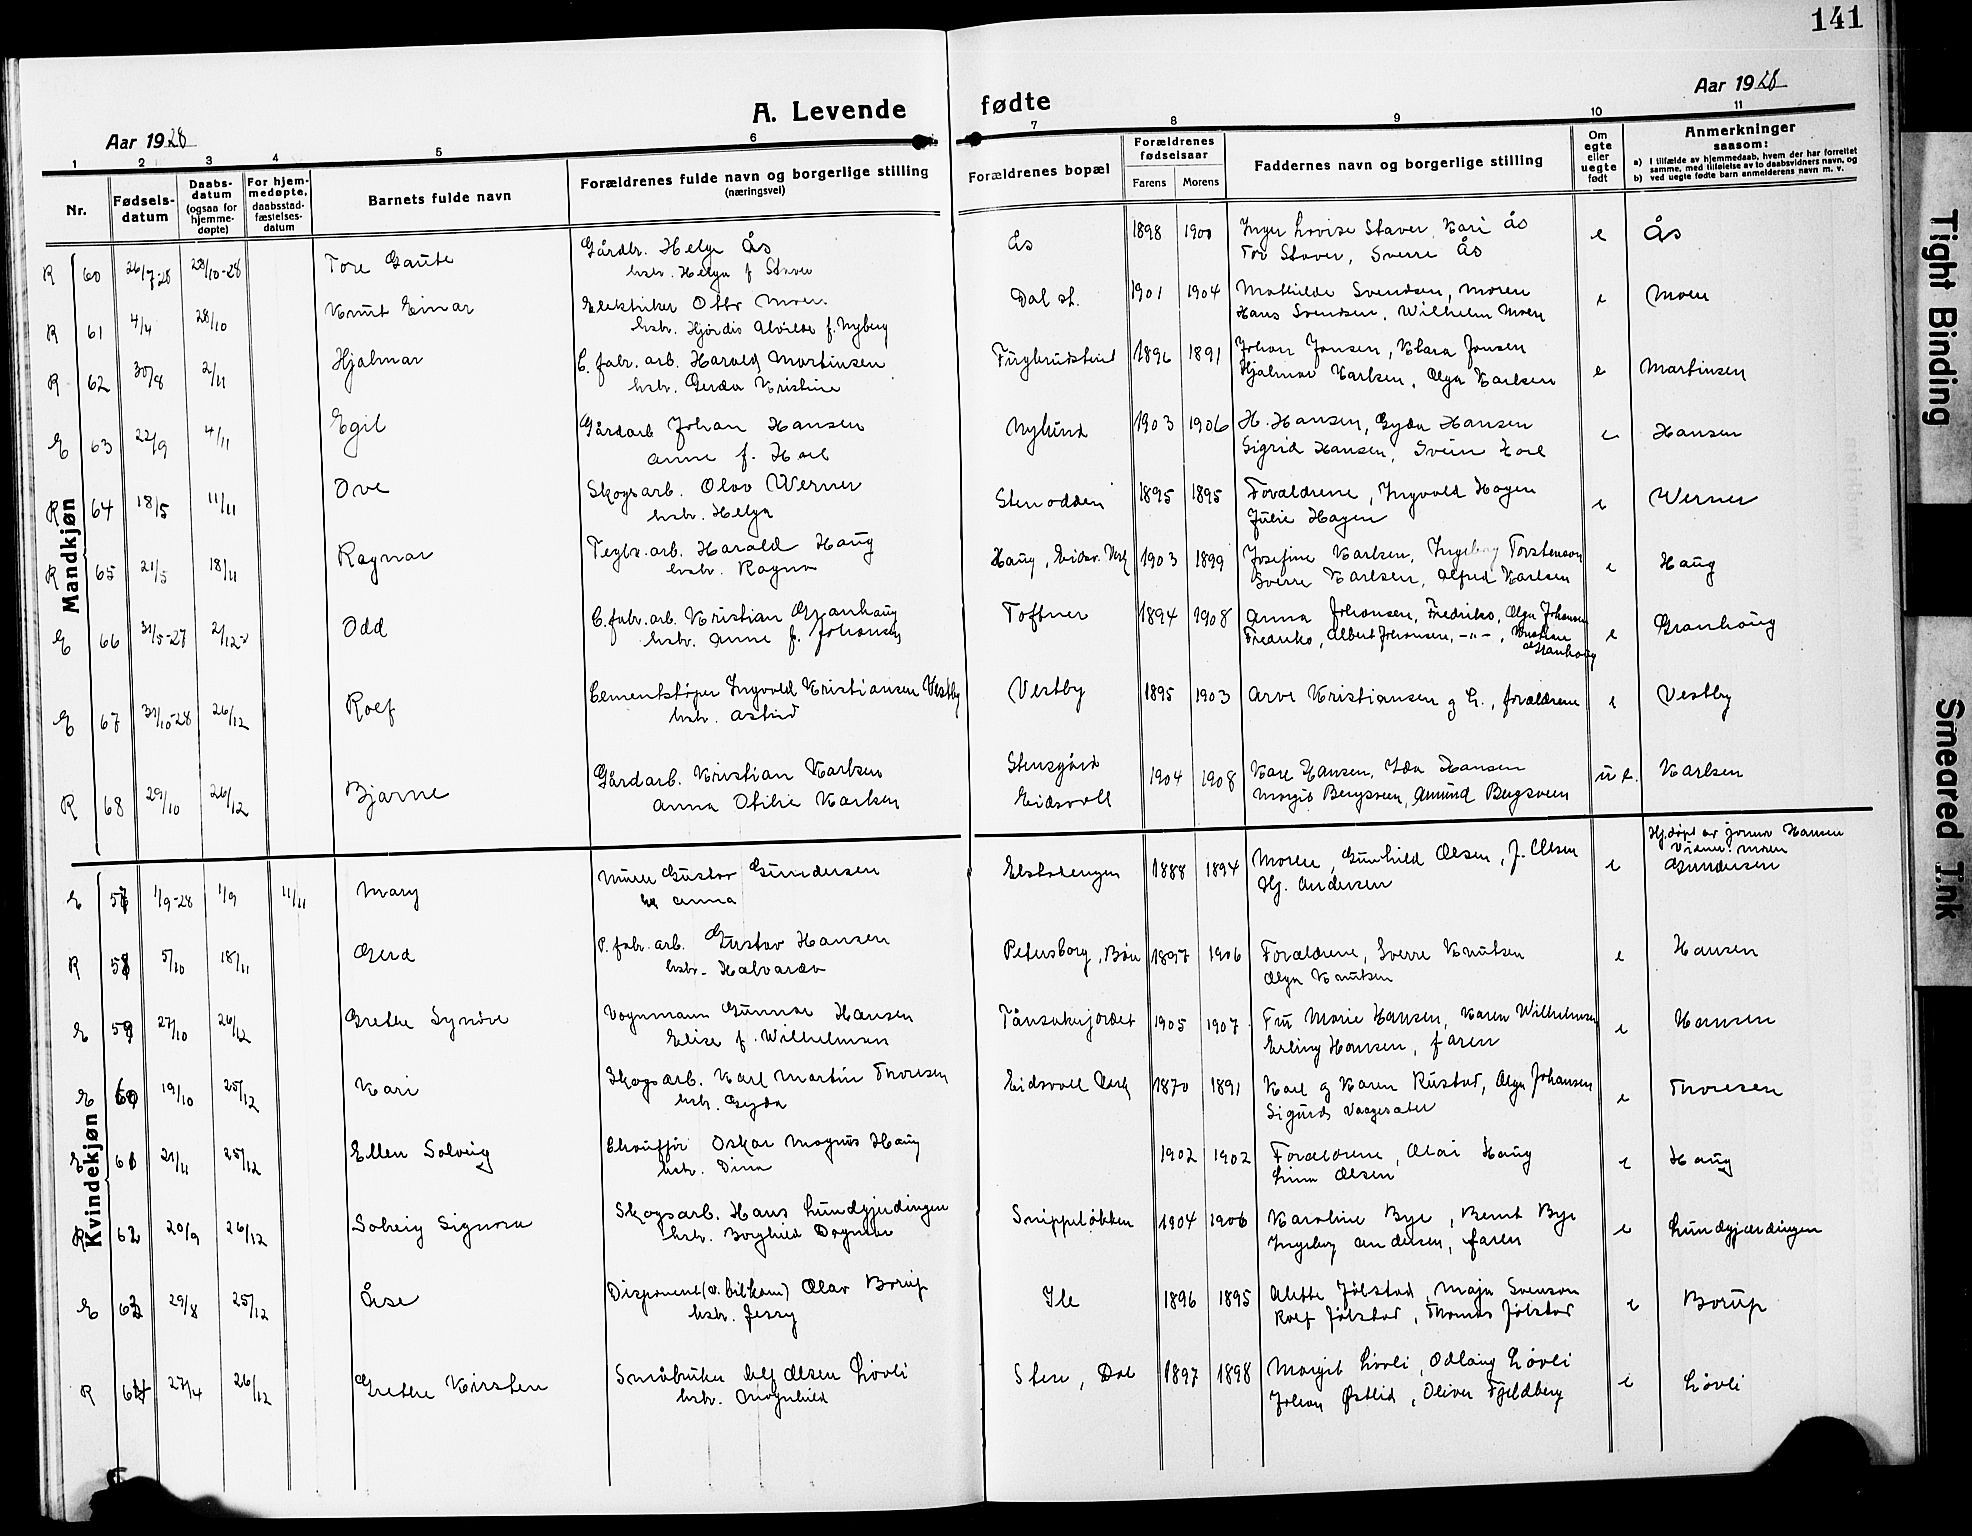 141
Aar 1928
A. Levende fødte
Aar 1928
1 2 3 4 5 6 7 8 9 10 11
Nr.
Fødsels-datum
Daabs-datum (ogsaa for hjemme-døpte)
For hjem-medøpte, daabsstad-fæstelses-datum
Barnets fulde navn
Forældrenes fulde navn og borgerlige stilling (næringsvei)
Forældrenes bopæl
Forældrenes fødselsaar
Farens Morens
Faddernes navn og borgerlige stilling
Om egte eller uegte født
Anmerkninger saasom:
a) I tilfælde av hjemmedaab, hvem der har forrettet samme, med tilføielse av to daabsvidners navn, og
b) ved uegte fødte barn anmelderens navn m. v.
Mandkjøn
R 60 26/7-28 28/10-28 Tore Gaute Gårdbr. Helge Ås Ås 1898 1900 Inger Lovise Staver, Kari Ås e Ås
hstr. Helga f Staver Tor Staver, Sverre Ås
R 61 4/4 28/10 Knut Einar Elektriker Otto Moen Dal st. 1901 1904 Mathilde Svendsen, moren e Moen
hstr. Hjördis Alvilde f. Nyberg Hans Svendsen, Wilhelm Moen
R 62 30/8 2/11 Hjalmar C. fabr. arb. Harald Martinsen 1896 1891 Johan Jonsen, Klara Jonsen e Martinsen
hstr. Gerda Kristine Hjalmar Karlsen, Olga Karlsen
E 63 22/9 4/11 Egil Gårdarb Johan Hansen Nylund 1903 1906 H. Hansen, Gyda Hansen e Hansen
Anne f. Hoel Sigrid Hansen, Svein Hoel
R 64 18/5 11/11 Ove Skogsarb. Olav Werner Stenodden 1895 1895 Forældrene, Ingvald Hagen e Werner
hstr. Helga Julie Hagen
R 65 21/5 18/11 Ragnar Teglv. arb. Harald Haug Haug, Eidsv. Verk 1903 1899 Josefine Karlsen, Ingeborg Torstensen e Haug
hstr. Ragna Sverre Karlsen, Alfred Karlsen
E 66 31/5-27 2/12 Odd C. fabr. arb. Kristian Granhaug Toftner 1894 1908 Anna Johansen, Fredriks, Olga Johansen e Granhaug
hstr. Anne f. Johansen Fredriks, Albert Johansen, -"-, Kristian Granhaug
E 67 31/10-28 26/12 Rolf Cementstøper Ingvald Kristiansen Vestby Vestby 1895 1903 Arve Kristiansen g E., forældrene e Vestby
hstr. Astrid
R 68 29/10 26/12 Bjarne Gårdarb. Kristian Karlsen Stensgård Eidsvoll 1904 1908 Karl Hansen, Ida Hansen u e. Karlsen
Anna Otilie Karlsen Margit Bergsveen, Amund Bergsveen
Kvindekjøn
E 57 1/9-28 1/9 11/11 Mary Murer Gustav Gundersen 1888 1894 Moren, Gunhild Olsen, J. Olsen e Hj. døpt av Hansen
Anna Hj. Andersen Vidne: moren Gundersen
R 58 5/10 18/11 Gerd P. fabr. arb. Gustav Hansen Petersborg, Bøn 1897 1906 Forældrene, Sverre Knutsen e Hansen
hstr. Halvarda Olga Knutsen
E 59 27/10 26/12 Grethe Synöve Vognmann Gunnar Hansen 1905 1907 Fru Marie Hansen, Karen Wilhelmsen e Hansen
Elise f. Wilhelmsen Erling Hansen, faren
E 60 19/10 25/12 Kari Skogsarb. Karl Martin Thoresen Eidsvoll Verk 1870 1891 Karl g Karen Rustad, Olga Johansen e Thoresen
hstr. Gyda Sigurd
E 61 21/11 25/12 Ellen Solveig Chauffør Oskar Magnus Haug 1902 1902 Forældrene, Olai Haug e Haug
hstr. Dina Olsen
R 62 20/9 26/12 Solveig Signora Skogsarb. Hans Lundgjerdingen Snippeløkken 1904 1906 Karoline Bye, Bernt Bye e Lundgjerdingen
hstr. Borghild Dagmar Ingeborg Andersen, faren
E 63 29/8 25/12 Åse Disponent Olav Borup Ile 1896 1895 Alette Jølstad, Maja Svenson e Borup
hstr. Jessy Rolf Jølstad, Thomas Jølstad
R 64 27/4 26/12 Grethe Kirsten Småbruker Olsen Løvli Sten, Dal 1897 1898 Margit Løvli, Odlaug Løvli e Løvli
hstr. Johan Østlid, Oliver Fjeldberg
Tight Binding
Smeared Ink